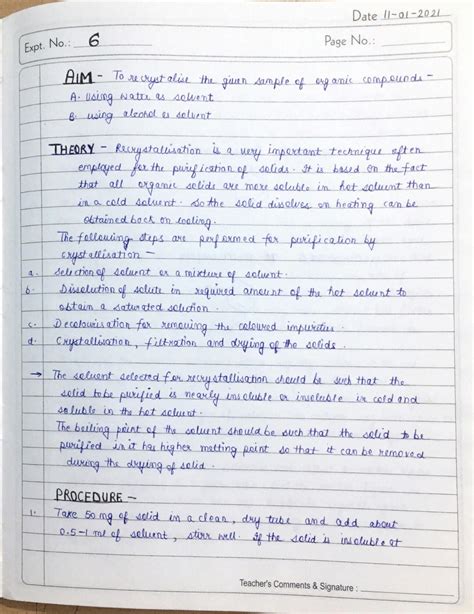 Date 11-01-2021
Expt. No.: 6 Page No.:
AIM - To recrystalise the given sample of organic compounds -
A. Using water as solvent
B. using alcohol as solvent
THEORY - Recrystallisation is a very important technique often
employed for the purification of solids. It is based on the fact
that all organic solids are more soluble in hot solvent than
in a cold solvent. So the solid dissolves on heating can be
obtained back on cooling.
The following steps are performed for purification by
crystallisation -
a. Selection of solvent or a mixture of solvent.
b. Dissolution of solute in required amount of the hot solvent to
obtain a saturated solution.
c. Decolourisation for removing the coloured impurities.
d. Crystallisation, filtration and drying of the solids.
→ The solvent selected for recrystallisation should be such that the
solid to be purified is nearly insoluble or insoluble in cold and
soluble in the hot solvent.
The boiling point of the solvent should be such that the solid to be
purified in it has higher melting point so that it can be removed
during the drying of solid.
PROCEDURE -
1. Take 50 mg of solid in a clean, dry tube and add about
0.5-1 ml of solvent, stirr well. If the solid is insoluble at
Teacher's Comments & Signature :